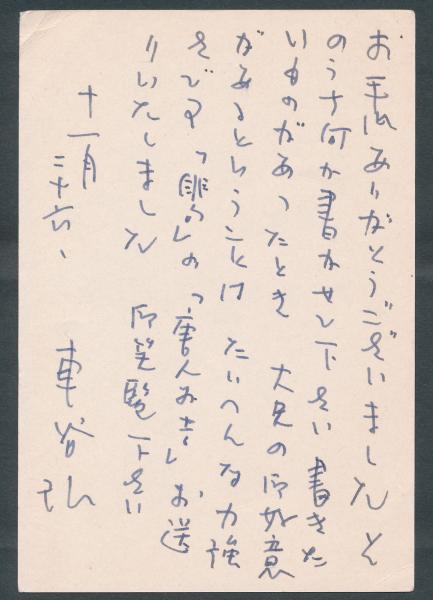 お手紙ありがとうございました そ
のうち何か書かせて下さい 書きた
いものがあつたとき 大兄の御好意
があるということは たいへんな力強
さです 「」の「唐人お吉」お送
りいたしました 御笑覧下さい
十一月
二十六、
車谷弘